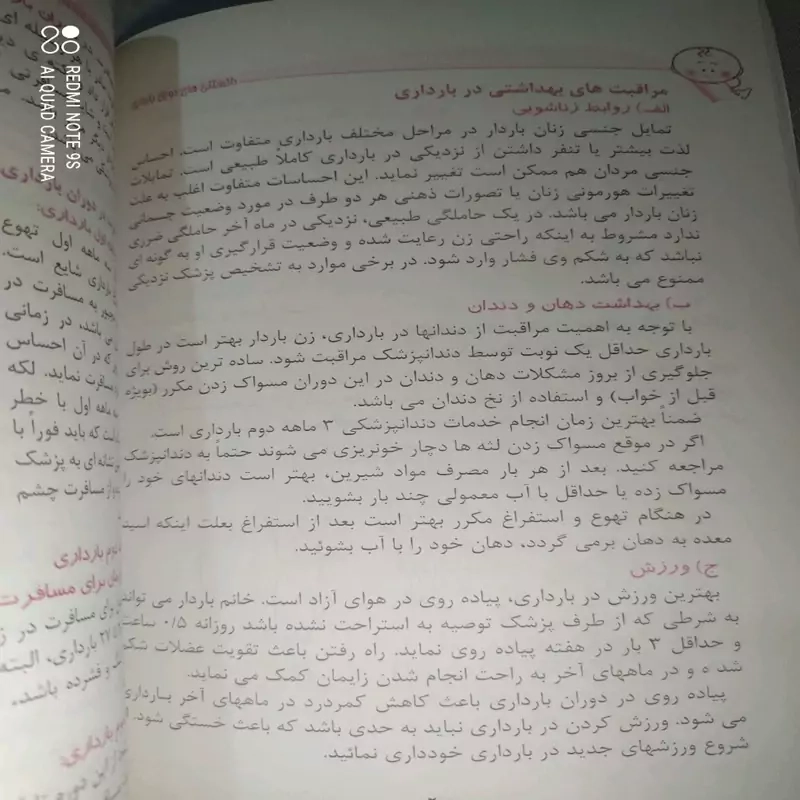 مراقبت های بهداشتی در بارداری
الف) روابط زناشویی
تمایل جنسی زنان باردار در مراحل مختلف بارداری متفاوت است. احساس
لذت بیشتر یا تنفر داشتن از نزدیکی در بارداری کاملاً طبیعی است. تمایلات
جنسی مردان هم ممکن است تغییر نماید. این احساسات متفاوت اغلب به علت
تغییرات هورمونی زنان یا تصورات ذهنی هر دو طرف در مورد وضعیت جسمانی
زنان باردار می باشد. در یک حاملگی طبیعی، نزدیکی در ماه آخر حاملگی ضرری
ندارد مشروط به اینکه راحتی زن رعایت شده و وضعیت قرارگیری او به گونه ای
نباشد که به شکم وی فشار وارد شود. در برخی موارد به تشخیص پزشک نزدیکی
ممنوع می باشد.
ب) بهداشت دهان و دندان
با توجه به اهمیت مراقبت از دندانها در بارداری، زن باردار بهتر است در طول
بارداری حداقل یک نوبت توسط دندانپزشک مراقبت شود. ساده ترین روش برای
جلوگیری از بروز مشکلات دهان و دندان در این دوران مسواک زدن مکرر (بویژه
قبل از خواب) و استفاده از نخ دندان می باشد.
ضمناً بهترین زمان انجام خدمات دندانپزشکی ۳ ماهه دوم بارداری است.
اگر در موقع مسواک زدن لثه ها دچار خونریزی می شوند حتماً به دندانپزشک
مراجعه کنید. بعد از هر بار مصرف مواد شیرین، بهتر است دندانهای خود را
مسواک زده یا حداقل با آب معمولی چند بار بشویید.
در هنگام تهوع و استفراغ مکرر بهتر است بعد از استفراغ بعلت اینکه اسید
معده به دهان برمی گردد، دهان خود را با آب بشوئید.
ج) ورزش
بهترین ورزش در بارداری، پیاده روی در هوای آزاد است. خانم باردار می تواند
به شرطی که از طرف پزشک توصیه به استراحت نشده باشد روزانه ۰/۵ ساعت
و حداقل ۳ بار در هفته پیاده روی نماید. راه رفتن باعث تقویت عضلات شکم
شد ه و در ماههای آخر به راحت انجام شدن زایمان کمک می نماید.
پیاده روی در دوران بارداری باعث کاهش کمردرد در ماههای آخر بارداری
می شود. ورزش کردن در بارداری نباید به حدی باشد که باعث خستگی شود. از
شروع ورزشهای جدید در بارداری خودداری نمائید.
در دوران بارداری
اول بارداری:
ماهه اول تهوع
بارداری شایع است.
به مسافرت در
باشد، در زمانی
که در آن احساس
مسافرت نماید. لکه
ماهه اول با خطر
است که باید فوراً با
نشانه ای به پزشک
از مسافرت چشم
دوم بارداری
برای مسافرت
برای مسافرت در
۲۷ بارداری، البته
و فشرده باشد.
بارداری:
REDMI NOTE 9S
AI QUAD CAMERA